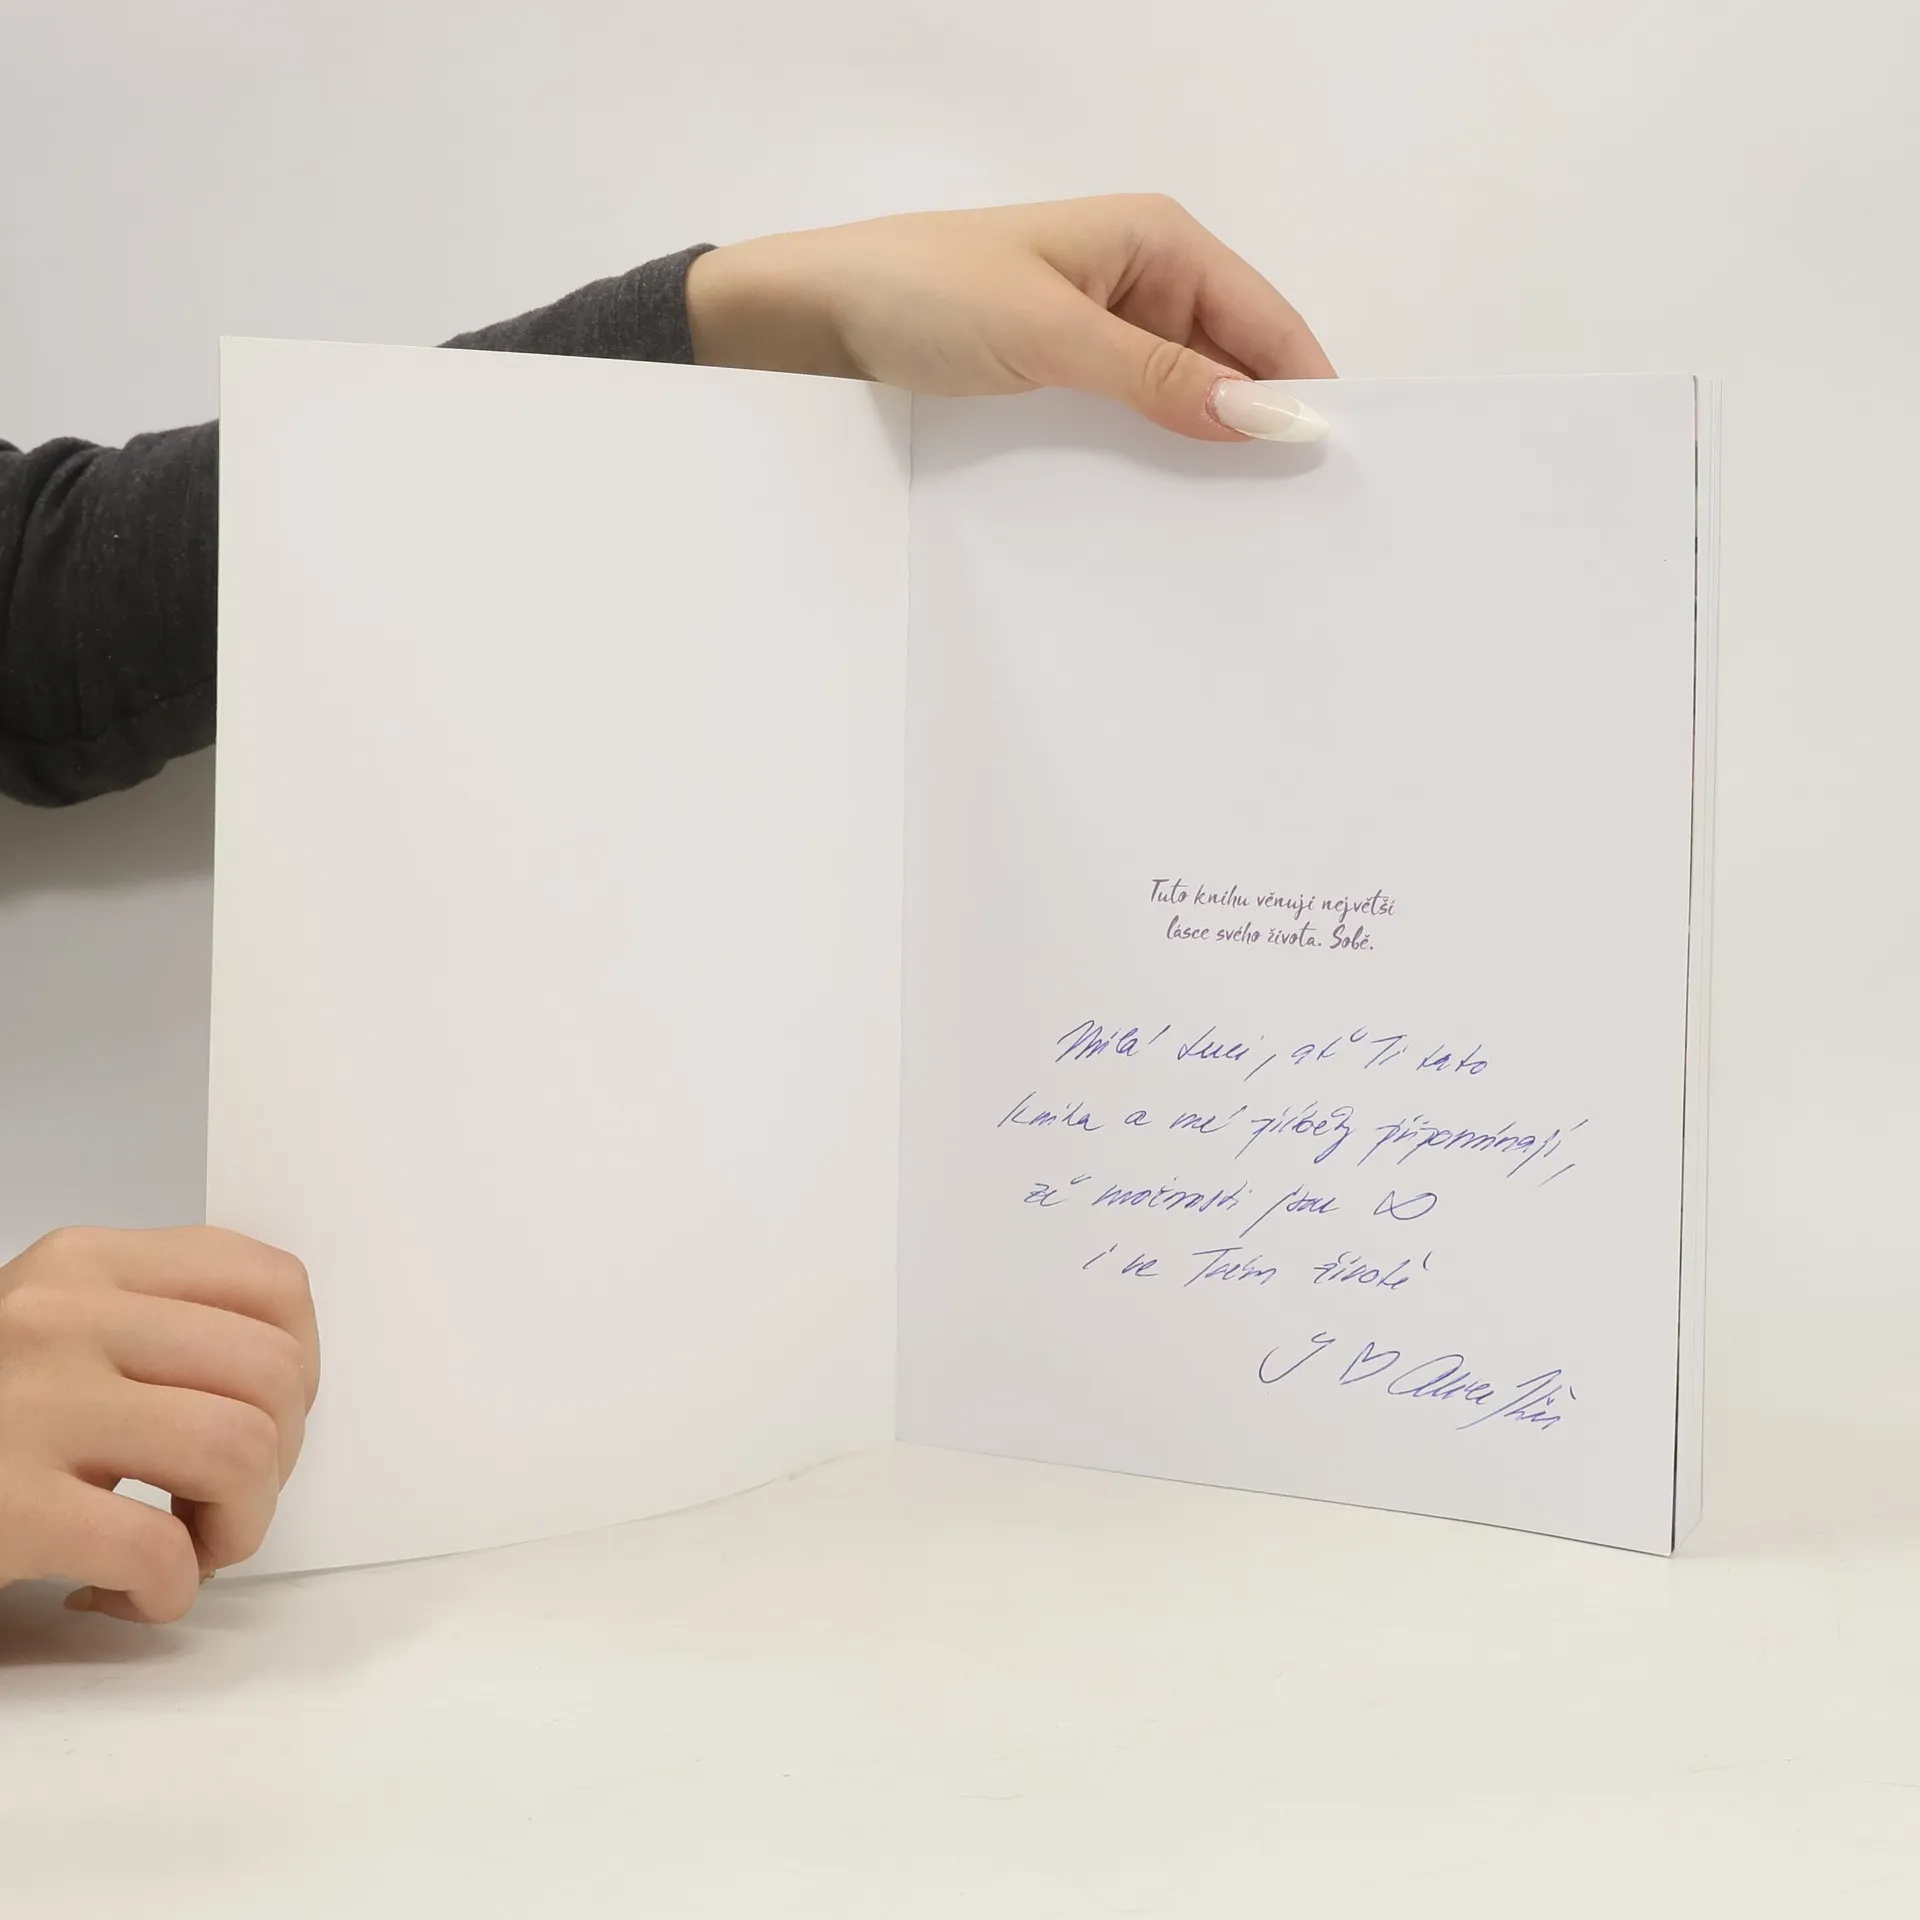 Tuto knihu věnuji největší
lásce svého života. Sobě.
Milá Luci, ať Ti tato
kniha a mé příběhy připomínají,
že možnosti jsou ∞
i ve Tvém životě
♡